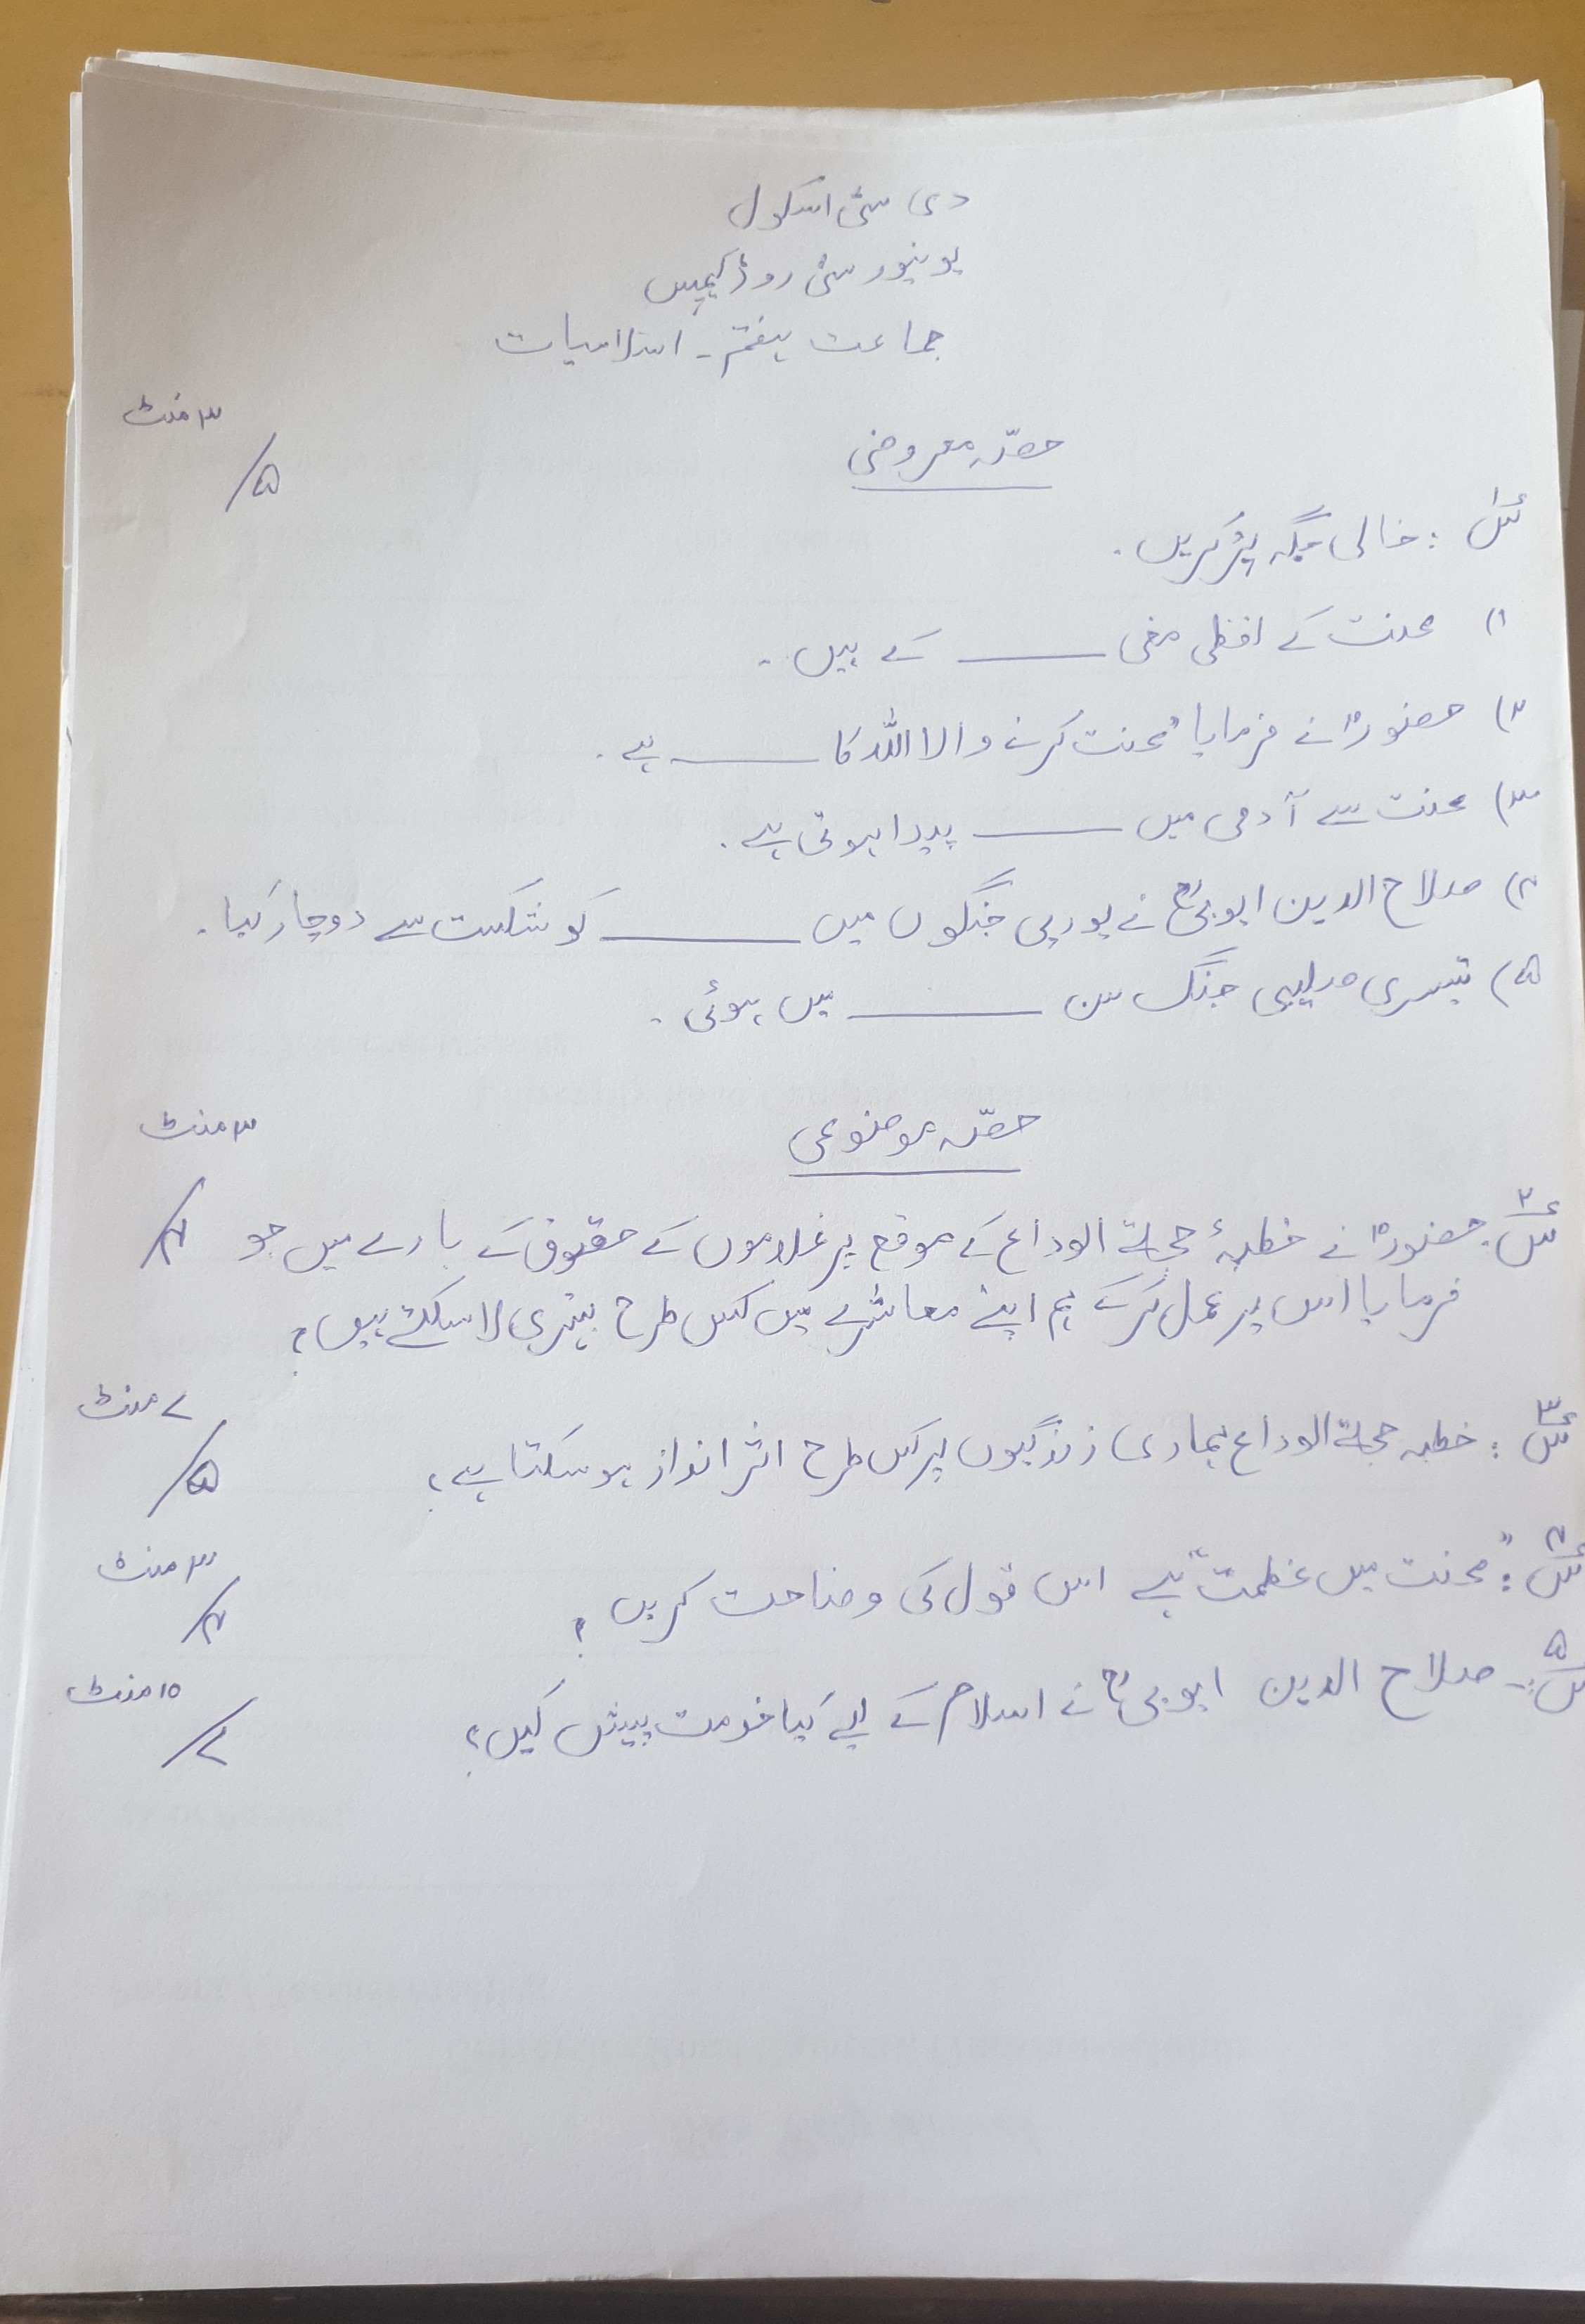 دی سٹی اسکول
یونیورسٹی روڈ کیمپس
جماعت ہفتم ۔ اسلامیات
۳ منٹ
حصّہ معروضی
/۵
س۱ : خالی جگہ پُر کریں ۔
۱) محنت کے لفظی معنی ______ کے ہیں ۔
۲) حضورؐ نے فرمایا "محنت کرنے والا اللہ کا ______ ہے ۔
۳) محنت سے آدمی میں ______ پیدا ہوتی ہے ۔
۴) صلاح الدین ایوبیؒ نے یورپی جنگوں میں ______ کو شکست سے دوچار کیا ۔
۵) تیسری صلیبی جنگ سن ______ میں ہوئی ۔
حصّہ موضوعی
۳ منٹ
س۲ حضورؐ نے خطبۂ حجۃ الوداع کے موقع پر غلاموں کے حقوق کے بارے میں جو /۴
فرمایا اس پر عمل کرکے ہم اپنے معاشرے میں کس طرح بہتری لا سکتے ہیں ؟
۷ منٹ
س۳ : خطبہ حجۃ الوداع ہماری زندگیوں پر کس طرح اثر انداز ہو سکتا ہے ؟ /۵
۳ منٹ
س۴ : "محنت میں عظمت" ہے اس قول کی وضاحت کریں ؟ /۴
۱۵ منٹ
س۵ :۔ صلاح الدین ایوبیؒ نے اسلام کے لیے کیا خدمت پیش کیں ؟ /۷